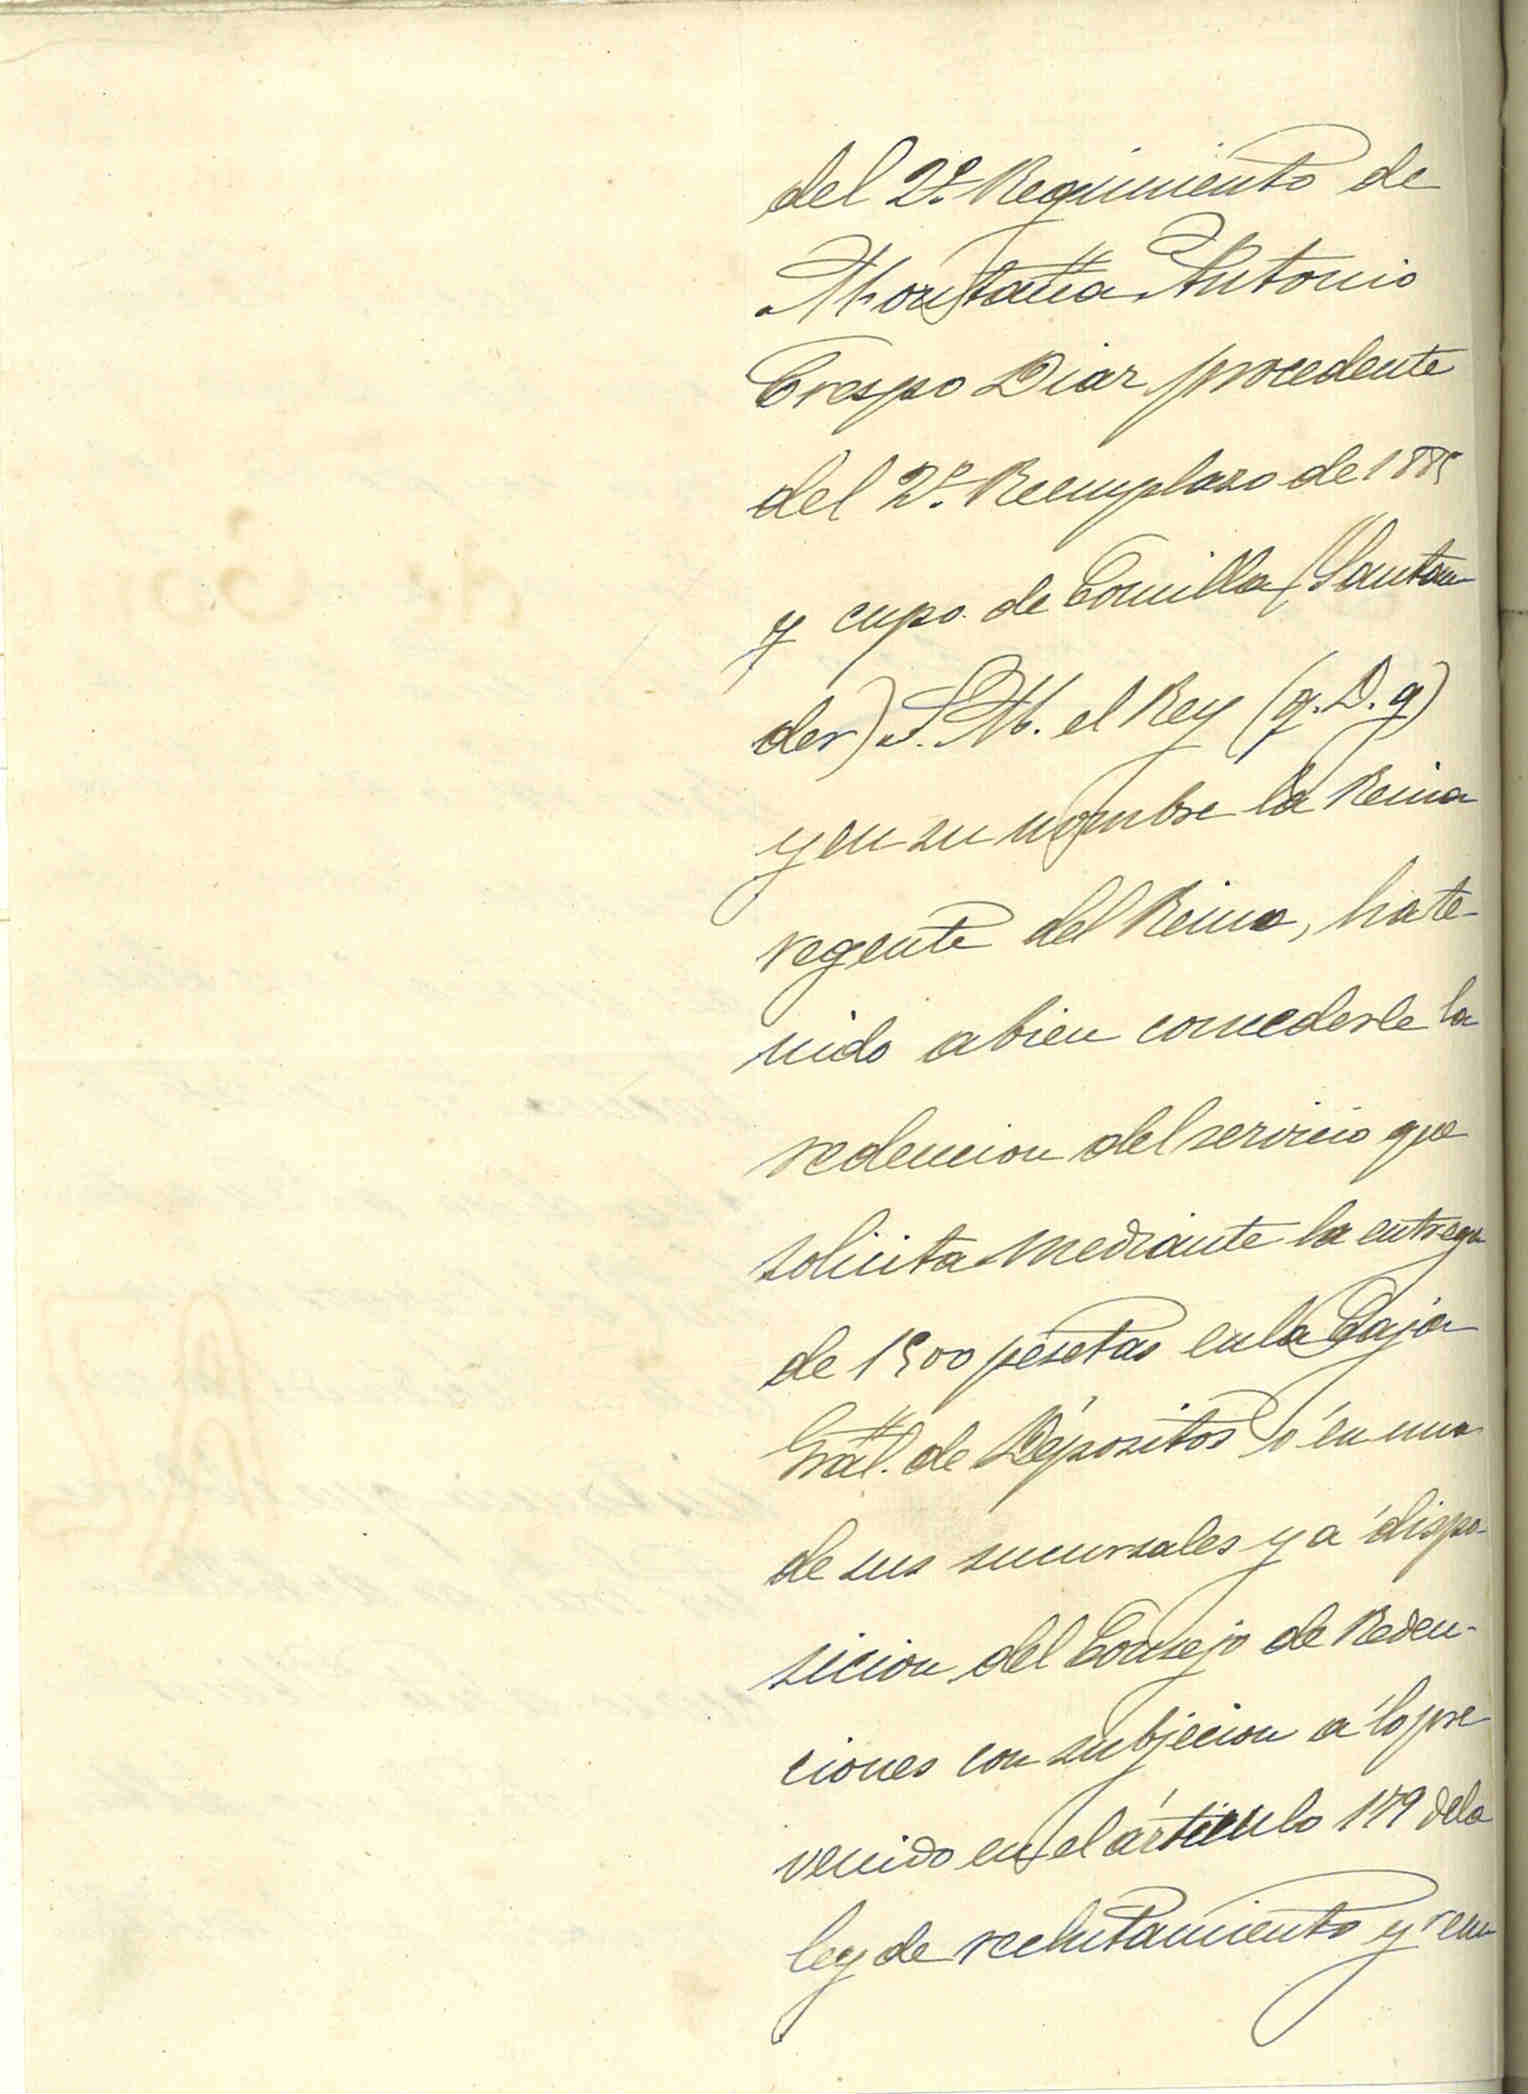 del 2º Regimiento de
Montaña Antonio
Crespo Diaz procedente
del 2º Reemplazo de 1885
y cupo de Comilla (Santan
der) S. M. el Rey (q. D. g)
y en su nombre la Reina
regente del Reino, ha te-
nido a bien concederle la
redencion del servicio que
solicita mediante la entrega
de 1500 pesetas en la Caja
Gral. de Depósitos ó en una
de sus sucursales y a dispo-
sicion del Consejo de Reden-
ciones con subjecion a lo pre
venido en el artículo 179 de la
ley de reclutamiento y reem